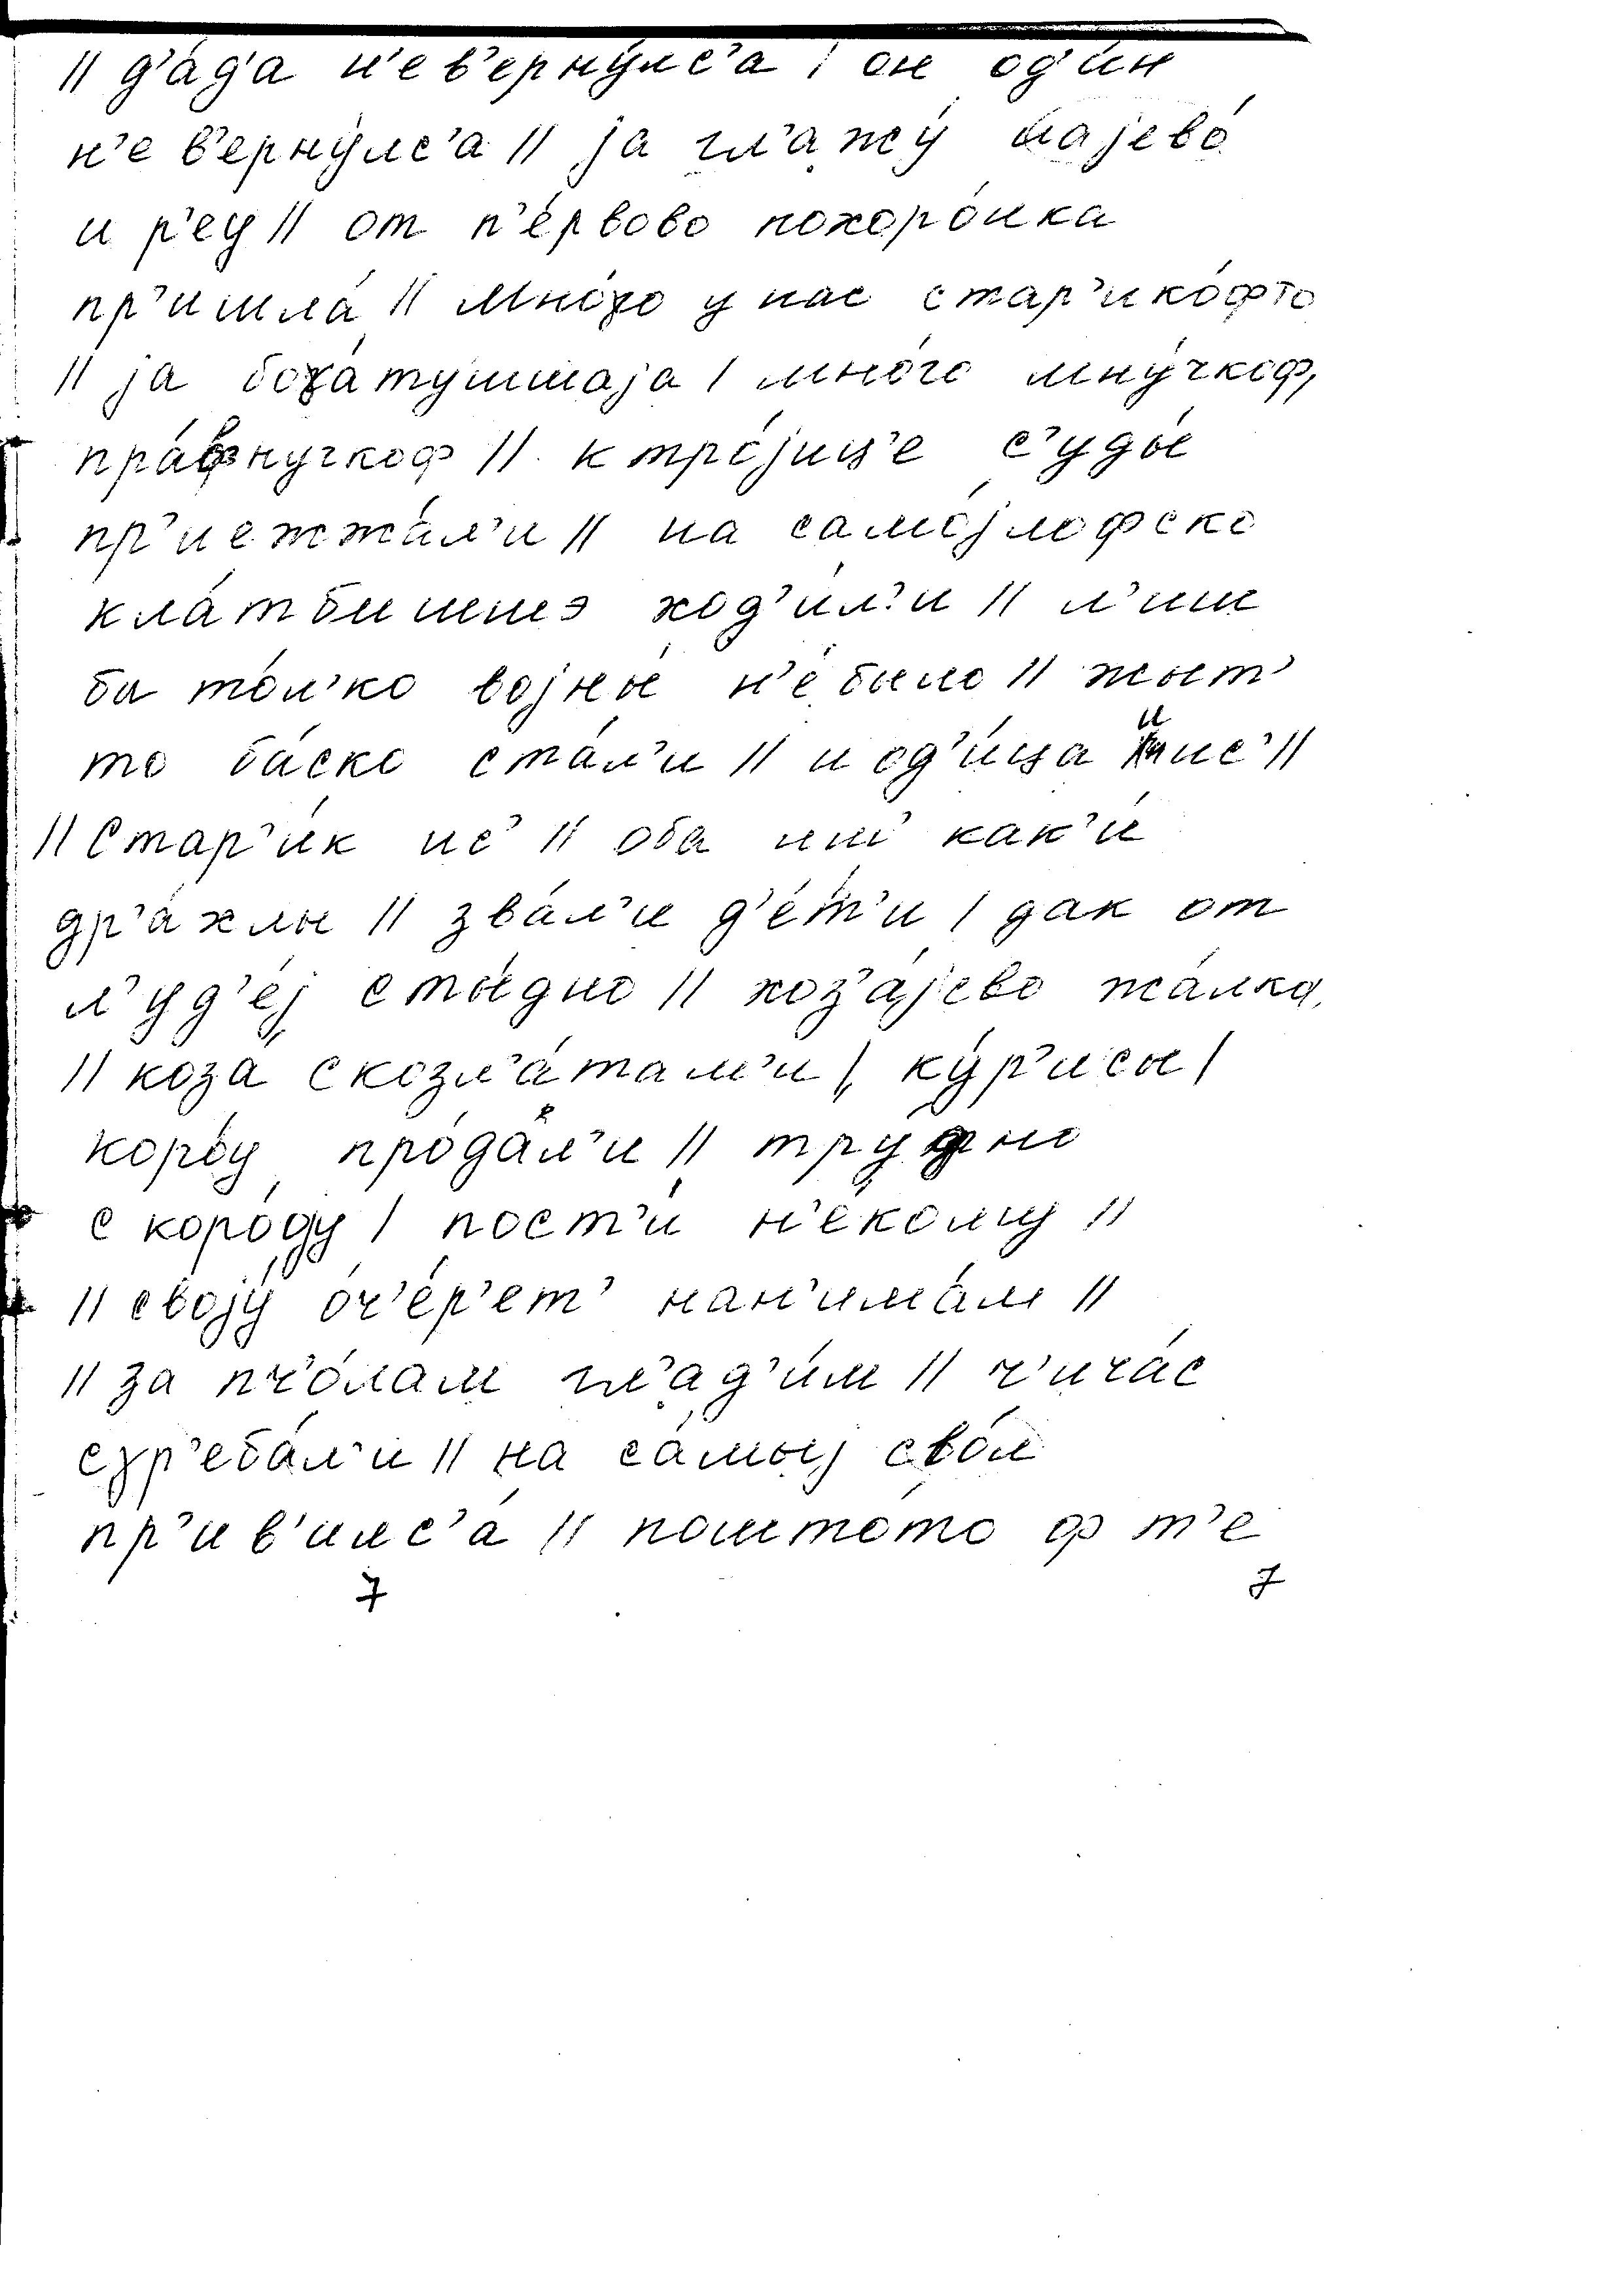 || д'а́д'а н'е в'ерну́лс'а | он од'и́н
н'е в'ерну́лс'а || jа гл'ажу́ најево́
и р'еу || от п'е́рвово похоро́нка
пр'ишла́ || мно́γо у нас стар'ико́фто
|| jа боγа́тушшаjа | мно́го мну́чкоф,
пра́внучкоф || к тро́jиц'е с'уды́
пр'иежжа́л'и || на само́jлофско
кла́тбишшэ ход'и́л'и || л'иш
бы то́л'ко воjны́ н'е́ было || жыт'
то ба́ско ста́л'и || и од'и́ца и ис'||
|| Стар'и́к ис' || оба иш как'и́
др'а́хлы || зва́л'и д'е́т'и | дак от
л'уд'е́j сты́дно || хоз'а́jево жа́лко,
|| коза́ с козл'а́там'и |, ку́р'исы |
коро́у про́дал'и || тру́дно
с коро́ду | пост'и́ н'е́кому ||
|| своjу́ о́ч'е́р'ет' нан'има́м ||
|| за пч'о́лам гл'ад'и́м || ч'ича́с
сγр'еба́л'и || на са́мыj ство́л
пр'ив'илс'а́ || пошто́то ф т'е
7 7